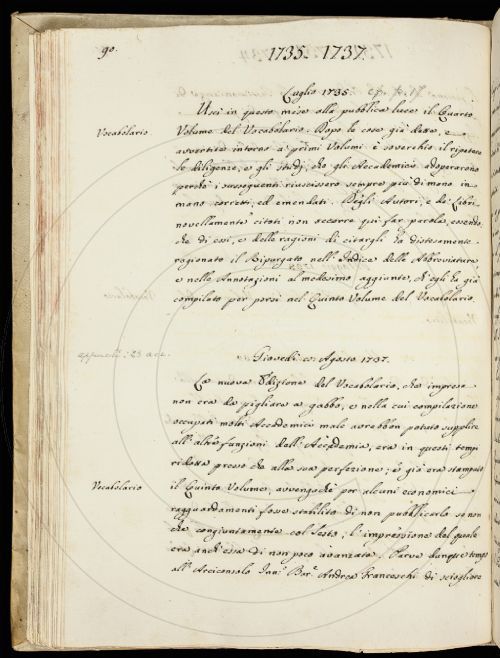 90.
1735. 1737.
Luglio 1735.
Uscì in questo mese alla pubblica luce il Quarto
Vocabolario
Volume del Vocabolario. Dopo le cose già dette, e
avvertite intorno a' primi Volumi è soverchio il ripetere
le diligenze, e gli studj, che gli Accademici adoperarono
perchè i susseguenti riuscissero sempre più di mano in
mano corretti, ed emendati. Degli Autori, e de' Libri
novellamente citati non accorre qui far parola, essendo
che di essi, e delle ragioni di citargli ha distesamente
ragionato il Ripurgato nell' Indice delle Abbreviature,
e nelle Annotazioni al medesimo aggiunte, ch' egli ha già
compilato per porsi nel Quinto Volume del Vocabolario.
Giovedì Agosto 1737.
La nuova Edizione del Vocabolario, che impresa
non era da pigliare a gabbo, e nella cui compilazione
occupati molti Accademici male avrebbon potuto supplire
all' altre funzioni dell' Accademia, era in questi tempi
ridotta presso che alla sua perfezione; e già era stampato
Vocabolario
il Quinto Volume, avvengachè per alcuni economici
ragguardamenti fosse stabilito di non pubblicarlo se non
che congiuntamente col Sesto; l' impressione del quale
era anch' essa di non poco avanzata. Parve dunque
all' Arciconsolo Andrea Franceschi di sciogliere